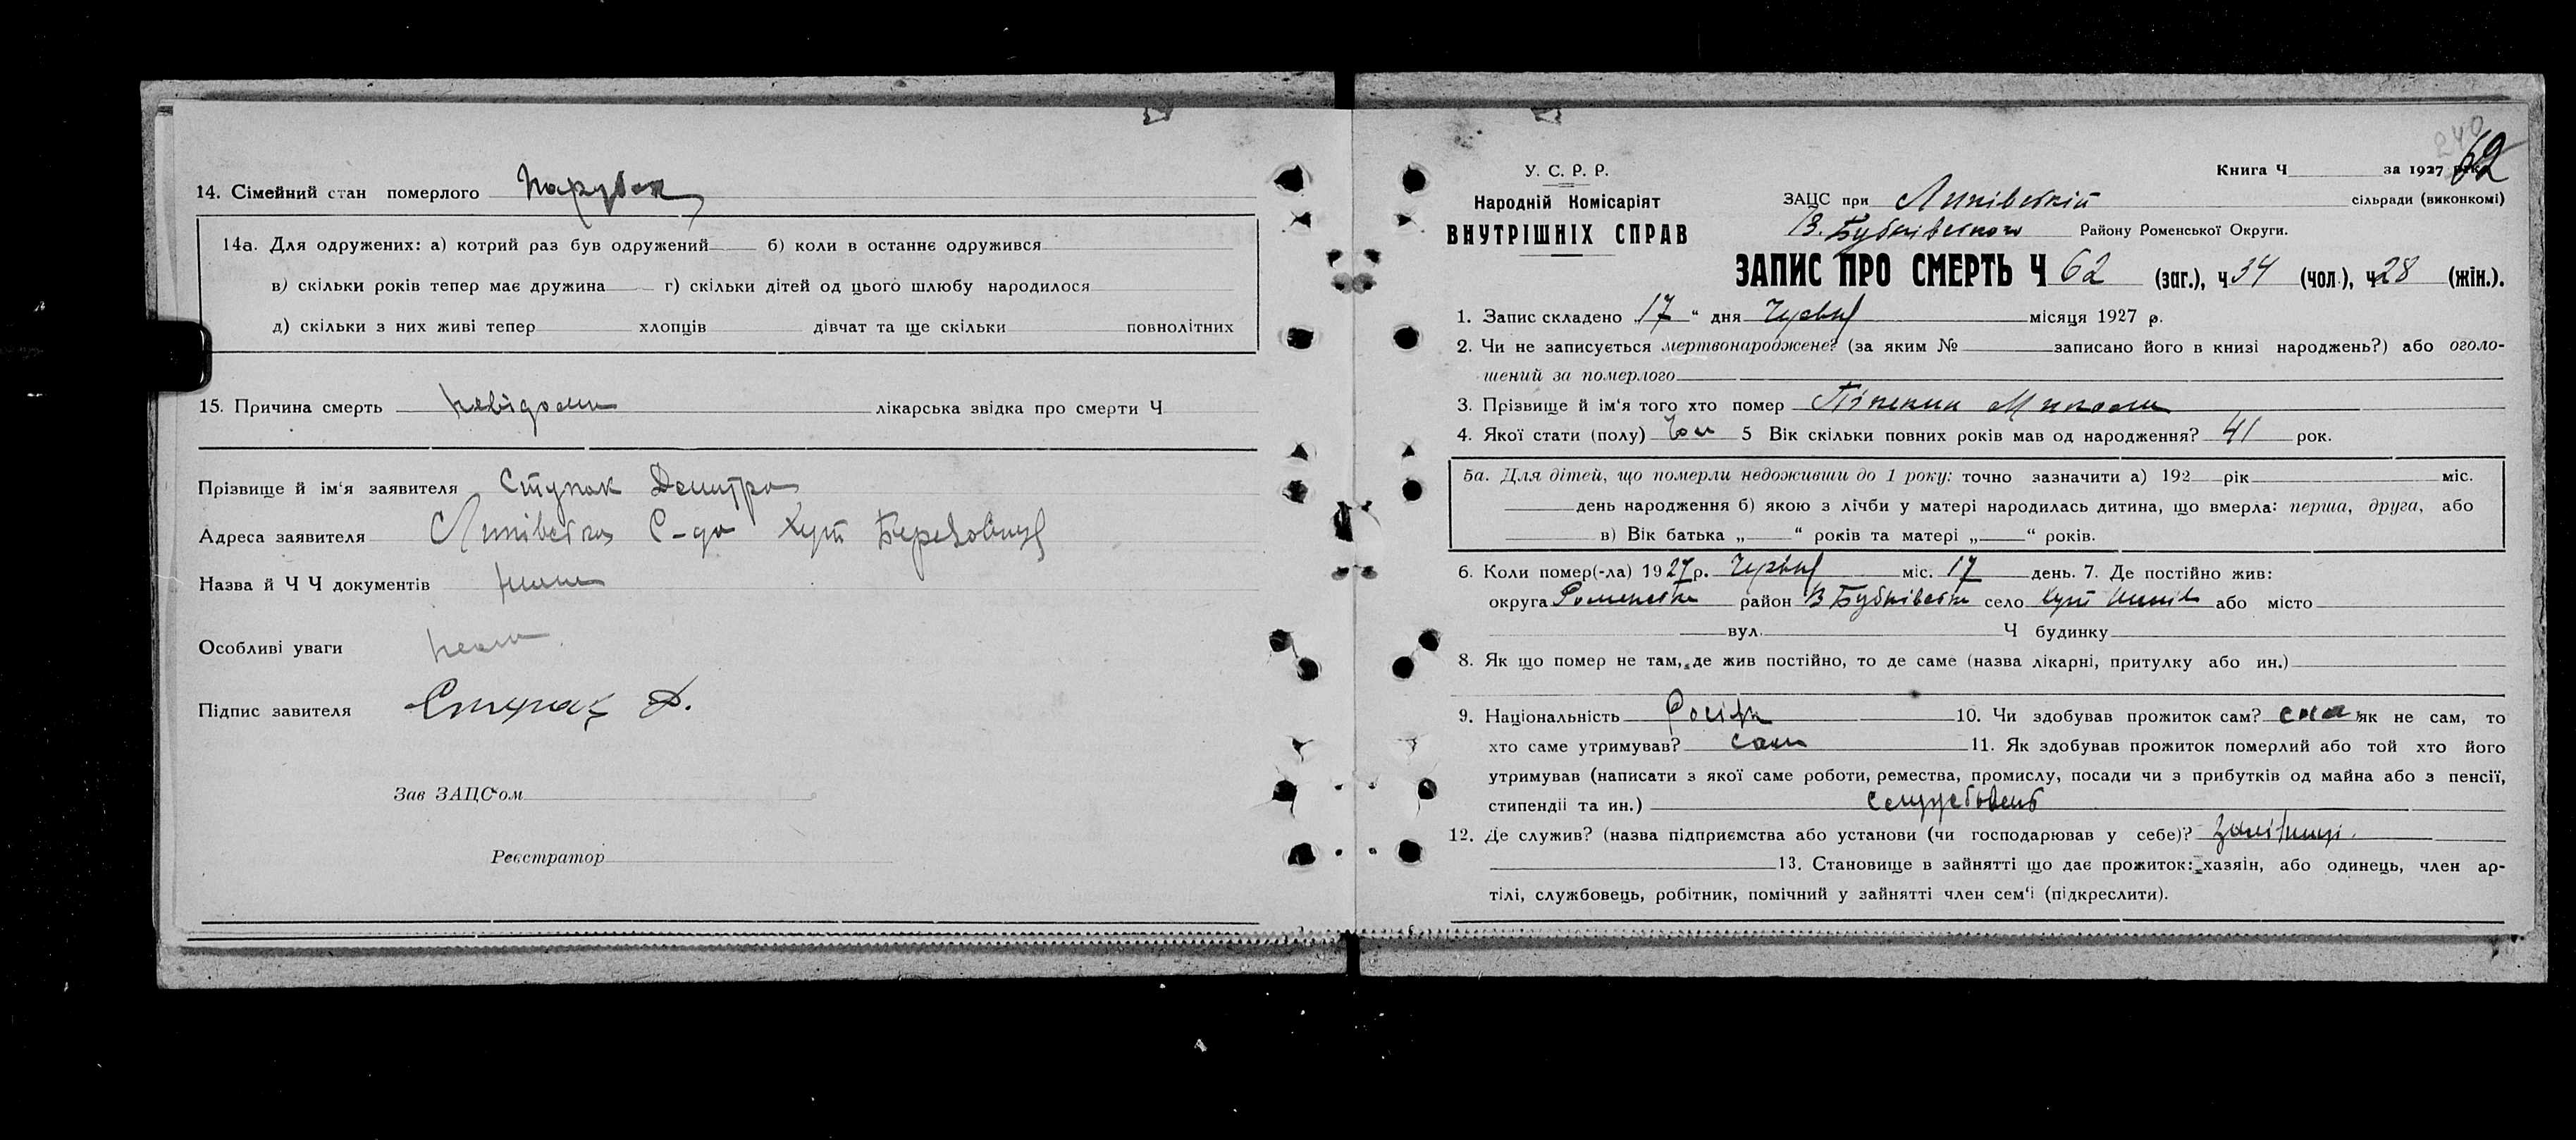 14. Сімейний стан померлого Парубок
14а. Для одружених: а) котрий раз був одружений б) коли в останнє одружився
в) скільки років тепер має дружина г) скільки дітей од цього шлюбу народилося
д) скільки з них живі тепер хлопців дівчат та ще скільки повнолітних
15. Причина смерть невідома лікарська звідка про смерти Ч
Прізвище й ім'я заявителя Ступак Дмитро
Адреса заявителя Липівська С-да хут
Назва й Ч Ч документів нема
Особливі уваги нема
Підпис завителя Ступак Д.
Зав ЗАЦС'ом
Реєстратор
240
62
У. С. Р. Р.
Народній Комісаріят
ВНУТРІШНІХ СПРАВ
Книга Ч за 1927
ЗАЦС при Липівській сільради (виконкомі)
В. Бубнівського Району Роменської Округи.
ЗАПИС ПРО СМЕРТЬ Ч 62 (заг.), ч 34 (чол.), ч 28 (жін.).
1. Запис складено „17" дня Червня місяця 1927 р.
2. Чи не записується мертвонароджене? (за яким № записано його в книзі народжень?) або оголо-
шений за померлого
3. Прізвище й ім'я того хто помер Микола
4. Якої стати (полу) Чол 5 Вік скільки повних років мав од народження? 41 рок.
5а. Для дітей, що померли недоживши до 1 року: точно зазначити а) 192 рік міс.
день народження б) якою з лічби у матері народилась дитина, що вмерла: перша, друга, або
в) Вік батька „ " років та матері „ " років.
6. Коли помер(-ла) 1927р. Червня міс. 17 день. 7. Де постійно жив:
округа Роменська район В Бубнівська село хут або місто
вул. Ч будинку
8. Як що помер не там, де жив постійно, то де саме (назва лікарні, притулку або ин.)
9. Національність 10. Чи здобував прожиток сам? сам як не сам, то
хто саме утримував? сам 11. Як здобував прожиток померлий або той хто його
утримував (написати з якої саме роботи, ремества, промислу, посади чи з прибутків од майна або з пенсії,
стипендії та ин.)
12. Де служив? (назва підприємства або установи (чи господарював у себе)?
13. Становище в зайнятті що дає прожиток: хазяін, або одинець, член ар-
тілі, службовець, робітник, помічний у зайнятті член сем'і (підкреслити).